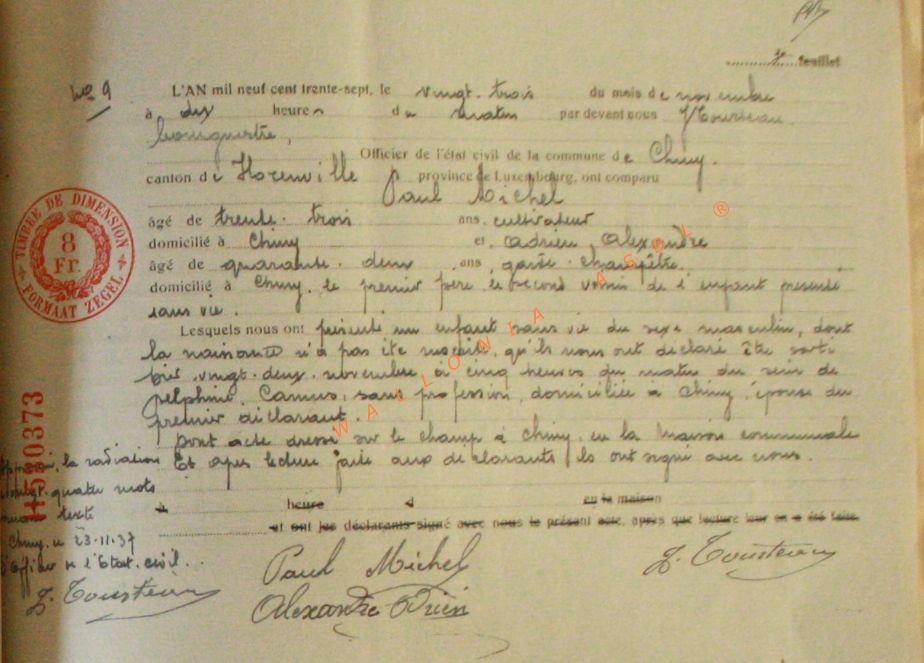 feuillet
No 9
L'AN mil neuf cent trente-sept, le vingt-trois du mois de novembre
à dix heures du matin par devant nous
bourgmestre,
Officier de l'état civil de la commune de Chiny.
canton de Florenville province de Luxembourg, ont comparu
Paul Michel
âgé de trente-trois ans, cultivateur
domicilié à Chiny et Adrien Alexandre
âgé de quarante-deux ans, garde-champêtre
domicilié à Chiny, le premier père le second voisin de l'enfant présenté
sans vie.
Lesquels nous ont présenté un enfant sans vie du sexe masculin, dont
la naissance n'a pas été inscrite, qu'ils nous ont déclaré être sorti
hier vingt-deux novembre à cinq heures du matin du sein de
Delphine Camus, sans profession, domiciliée à Chiny, épouse du
premier déclarant.
Dont acte dressé sur le champ à Chiny, en la maison communale
Et après lecture faite aux déclarants, ils ont signé avec nous.
à heure d en la maison
et ont les déclarants signé avec nous le présent acte, après que lecture leur en a été faite.
TIMBRE DE DIMENSION
8
Fr.
FORMAAT ZEGEL
la radiation
vingt-quatre mots
texte
Chiny, le 23-11-37
l'Officier de l'Etat-civil
Paul Michel
Alexandre Adrien
WALLONIA ASBL ®